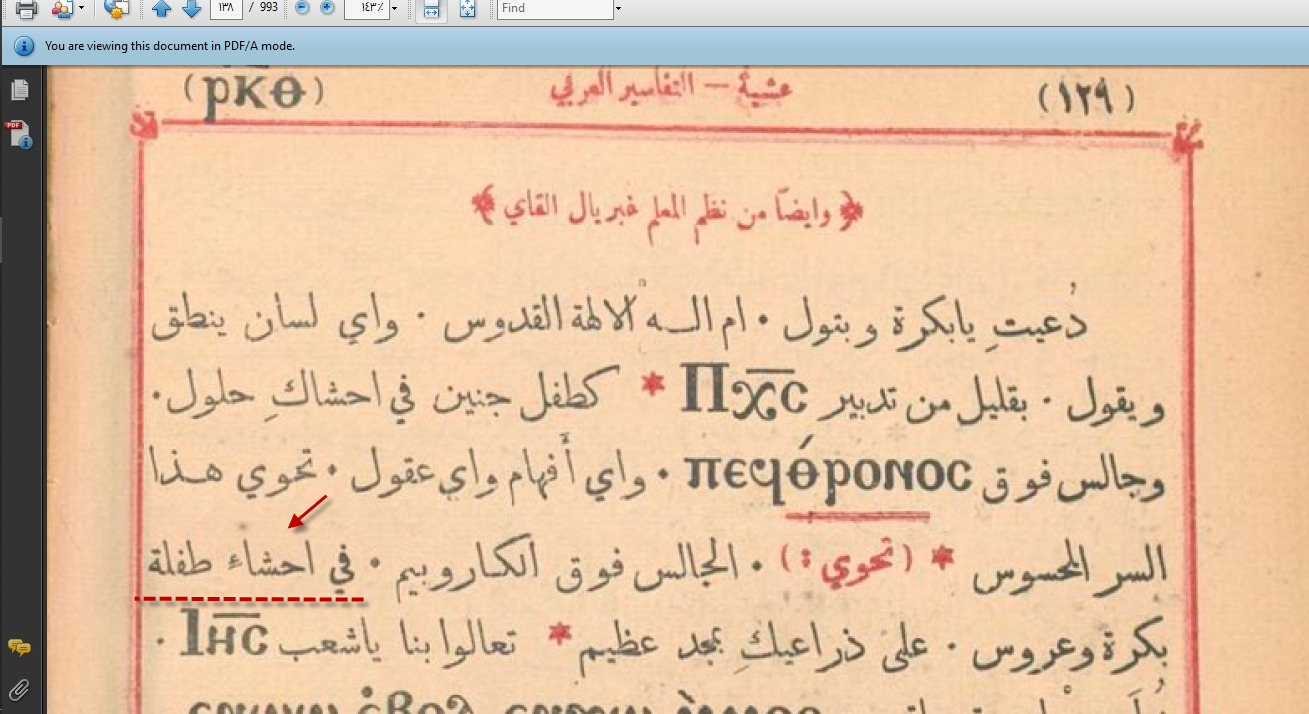 ١٣٨ / 993 ١٤٣٪ Find
You are viewing this document in PDF/A mode.
(ⲣⲕⲑ) عشية — التفاسير العربي (١٢٩)
وايضاً من نظم المعلم غبريال القاي
دُعيتِ يابكرة وبتول • ام الـــه الالهة القدوس • واي لسان ينطق
ويقول • بقليل من تدبير Ⲡⲭ̅ⲥ̅ * كطفل جنين في احشاكِ حلول •
وجالس فوق ⲡⲉϥⲑ̀ⲣⲟⲛⲟⲥ • واي أَفهام واي عقول • تحوي هـذا
السر المحسوس * (تحوي :) • الجالس فوق الكاروبيم • في احشاء طفلة
بكرة وعروس • على ذراعيكِ بمجد عظيم * تعالوا بنا ياشعب Ⲓⲏ̅ⲥ̅ •